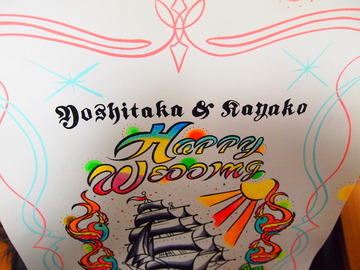 Yoshitaka & Kayako
Happy
Wedding